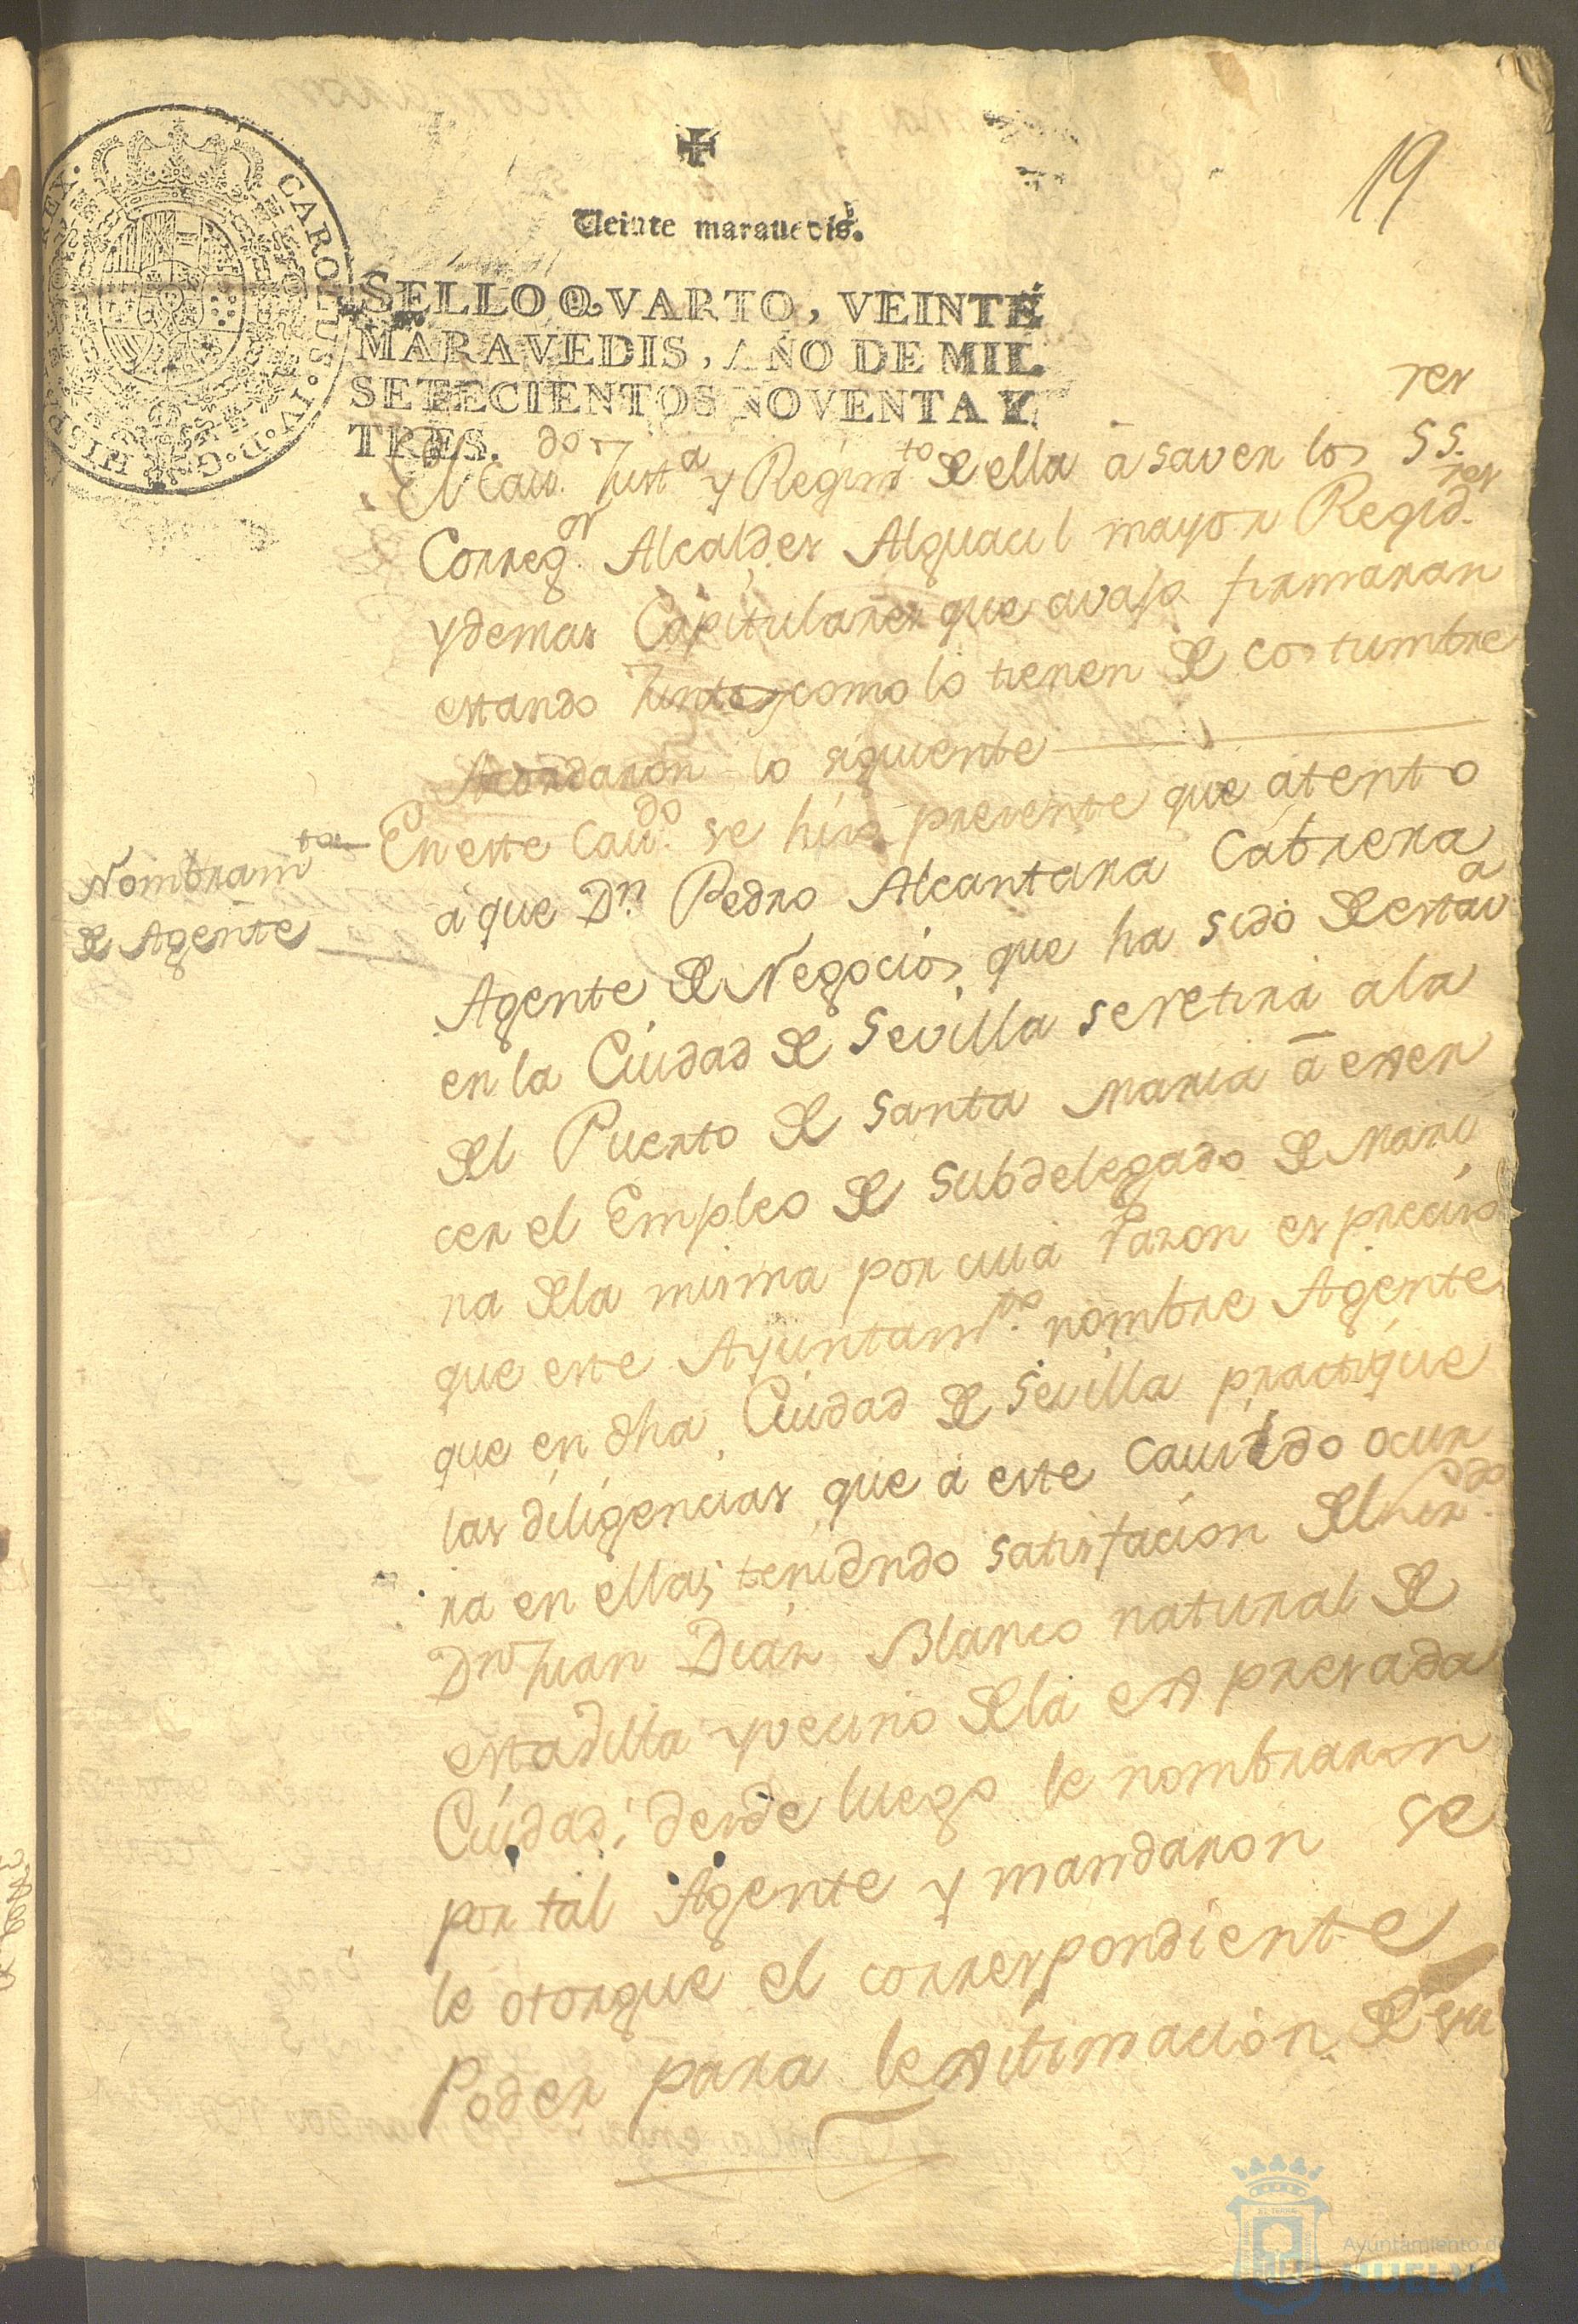 19
Veinte maravedis.
CAROLUS. IV. D. G. HISP REX.
SELLO QVARTO, VEINTE
MARAVEDIS, AÑO DE MIL
SETECIENTOS NOVENTA Y
TRES.
El Cavdo. Justa y Regimto de ella â saver los SS.res
Corregor. Alcaldes Alguacil mayor Regidres.
y demas Capitulares que avajo firmaran
estando Juntos como lo tienen de costumbre
Acordaron lo siguente
Nombramto
de Agente
En este Cavdo. se hiso presente que atento
a que Dn. Pedro Alcantara Cabrera
Agente de Negocios que ha sido de esta va
en la Ciudad de Sevilla se retira a la
del Puerto de Santa Maria â exer
cer el Empleo de Subdelegado de Mari
na de la misma por cuia razon es preciso
que este Ayuntamto. nombre Agente
que en dha Ciudad de Sevilla practique
las diligencias que á este Cavildo ocur
ra en ellas; teniendo satisfacion del
Dn Juan Diaz Blanco natural de
esta dilla y vecino de la expresada
Ciudad; desde luego le nombraron
por tal Agente y mandaron se
le otorgue el correspondiente
Poder para lexitimacion de su
Ayuntamiento de
HUELVA